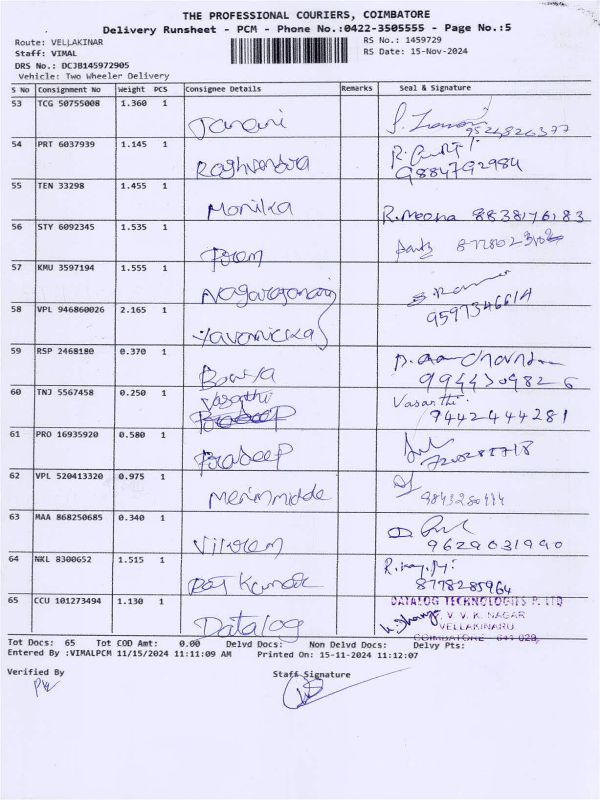 THE PROFESSIONAL COURIERS, COIMBATORE
Delivery Runsheet - PCM - Phone No.:0422-3505555 - Page No.:5
Route: VELLAKINAR RS No.: 1459729
Staff: VIMAL RS Date: 15-Nov-2024
DRS No.: DCJB145972905
Vehicle: Two Wheeler Delivery
S No Consignment No Weight PCS Consignee Details Remarks Seal & Signature
53 TCG 50755008 1.360 1
Janani
54 PRT 6037939 1.145 1
Raghvendra 9884792984
55 TEN 33298 1.455 1
Monika R. Meena 8838176183
56 STY 6092345 1.535 1
Prem
57 KMU 3597194 1.555 1
58 VPL 946860026 2.165 1
59 RSP 2468180 0.370 1
60 TNJ 5567458 0.250 1
Vasathi Vasanthi
Pradeep 9442444281
61 PRO 16935920 0.580 1
Pradeep
62 VPL 520413320 0.975 1
63 MAA 868250685 0.340 1
Vikram 9629031990
64 NKL 8300652 1.515 1
8778285964
65 CCU 101273494 1.130 1
DATALOG TECHNOLOGIES P. LTD
V. V. K. NAGAR
Datalog VELLAKINARU
COIMBATORE - 641 029.
Tot Docs: 65 Tot COD Amt: 0.00 Delvd Docs: Non Delvd Docs: Delvy Pts:
Entered By :VIMALPCM 11/15/2024 11:11:09 AM Printed On: 15-11-2024 11:12:07
Verified By Staff Signature